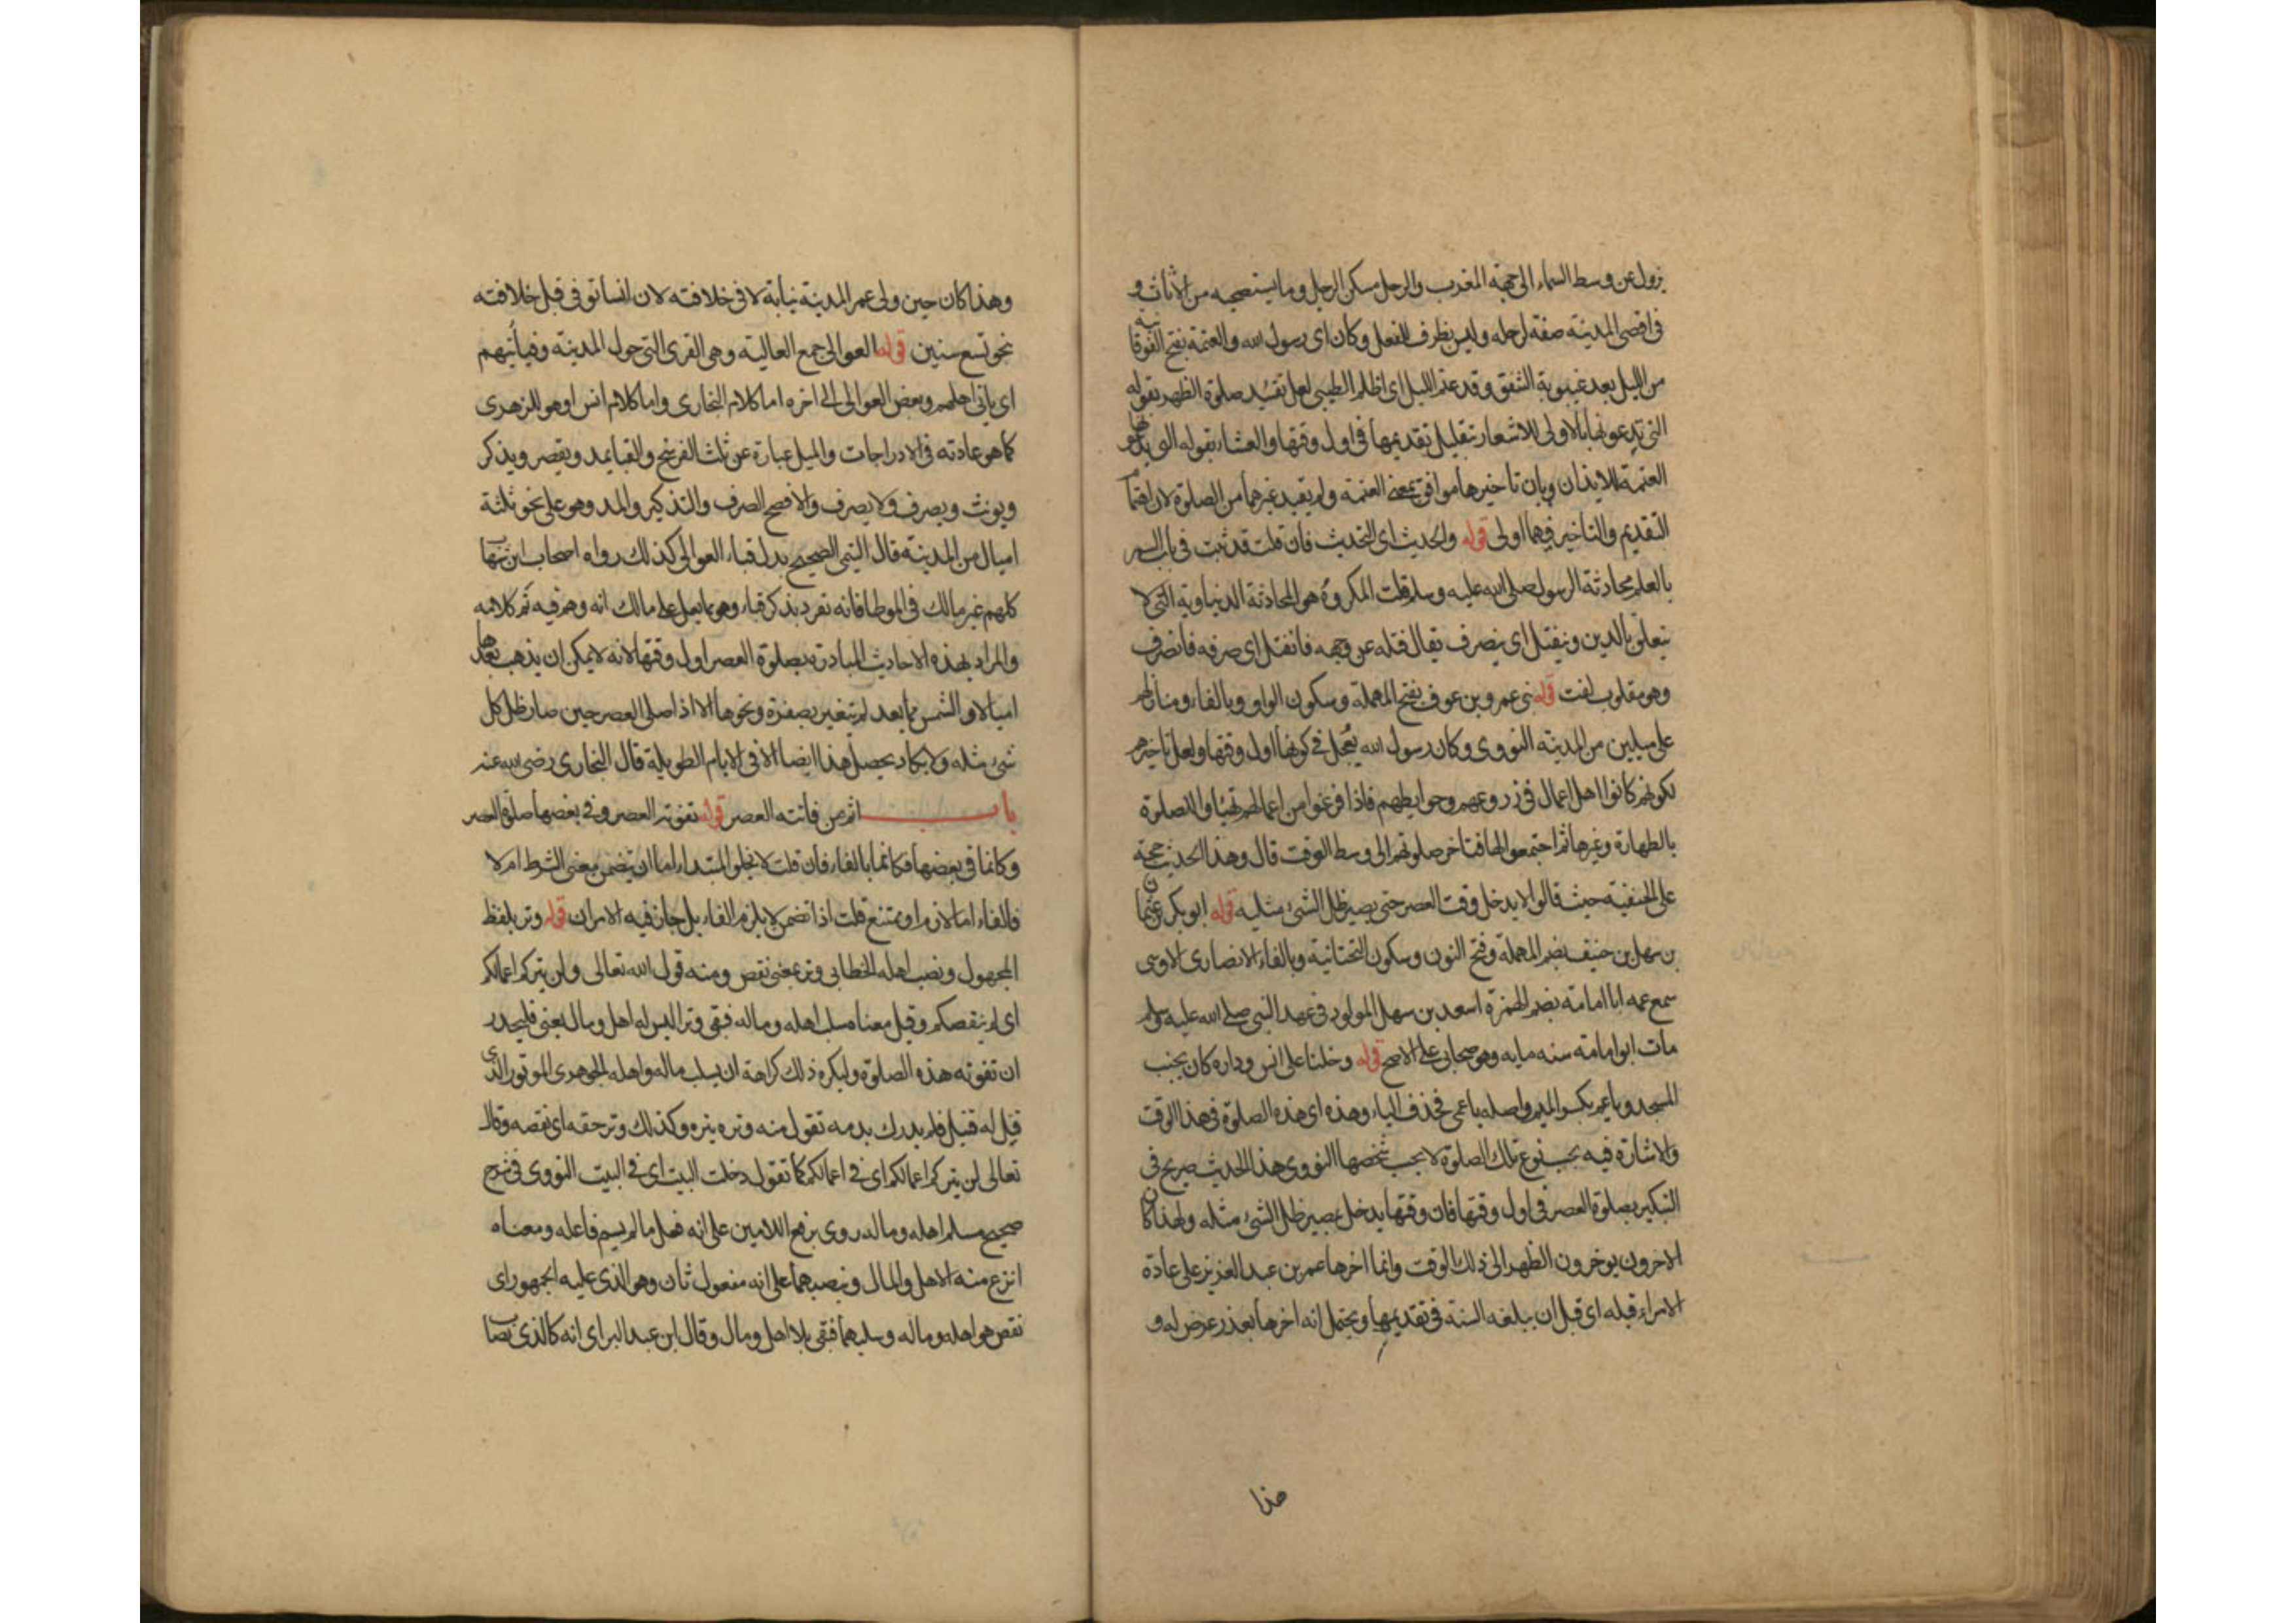 يزول عن وسط السماء الى جهة المغرب والرحل مسكن الرجل وما يستصحبه من الاثاث و
فى اقصى المدينة صفة لرحله وليس بظرف للفعل وكان اى رسول الله والعتمة بفتح الفوقانية
من الليل بعد غيبوبة الشفق وقد عتم الليل اى اظلم الطيبى لعل تقييد صلوة الظهر بقوله
التى تدعونها بالاولى للاشعار بتقليل تقديمها فى اول وقتها والعشاء بقوله التى يدعونها
العتمة للايذان وبان تاخيرها موافق بمعنى العتمة ولم يقيد غيرهما من الصلوة لان اهتمام
التقديم والتاخير فيهما اولى قوله والحديث اى التحديث فان قلت قد ثبت فى باب السمر
بالعلم محادثة الرسول صلى الله عليه وسلم قلت المكروه هو المحادثة الدنياوية التى لا
تتعلق بالدين وينفتل اى ينصرف يقال فتله عن وجهه فانفتل اى صرفه فانصرف
وهو مقلوب لفت قوله بنى عمرو بن عوف بفتح المهملة وسكون الواو وبالفاء ومنازلهم
على ميلين من المدينة النووى وكان رسول الله يعجل فى كونها اول وقتها ولعل تاخيرهم
لكونهم كانوا اهل اعمال فى زروعهم وحوايطهم فاذا فرغوا من اعمالهم تهيئوا للصلوة
بالطهارة وغيرها ثم اجتمعوا لها فتاخر صلوتهم الى وسط الوقت قال وهذا الحديث حجة
على الحنفية حيث قالوا لا يدخل وقت العصر حتى يصير ظل الشىء مثليه قوله ابو بكر بن عثمان
بن سهل بن حنيف بضم المهملة وفتح النون وسكون التحتانية وبالفاء الانصارى الاوسى
سمع عمه ابا امامة بضم الهمزة اسعد بن سهل المولود فى عهد النبى صلى الله عليه وسلم
مات ابو امامة سنه مايه وهو صحابى على الاصح قوله دخلنا على انس وداره كان بجنب
المسجد ويا عم بكسر الميم واصله يا عمى فحذف الياء وهذه اى هذه الصلوة فى هذا الوقت
والاشارة فيه بحسب نوع تلك الصلوة لا بحسب شخصها النووى هذا الحديث صريح فى
التبكير بصلوة العصر فى اول وقتها فان وقتها يدخل بمصير ظل الشىء مثله ولهذا كان
الاخرون يوخرون الظهر الى ذلك الوقت وانما اخرها عمر بن عبد العزيز على عادة
الامراء قبله اى قبل ان يبلغه السنة فى تقديمها ويحتمل انه اخرها بعذر عرض له و
هذا
وهذا كان حين ولى عمر المدينة نيابة لا فى خلافته لان انسا توفى قبل خلافته
بنحو تسع سنين قوله العوالى جمع العالية وهى القرى التى حول المدينة وفياتيهم
اى ياتى اهلهم وبعض العوالى الى اخره اما كلام البخارى واما كلام انس او هو للزهرى
كما هو عادته فى الادراجات والميل عبارة عن ثلث الفرسخ والقبا يمد ويقصر ويذكر
ويونث ويصرف ولا يصرف والافصح الصرف والتذكير والمد وهو على نحو ثلثة
اميال من المدينة قال التيمى الصحيح بدل قباء العوالى كذلك رواه اصحاب ابن شهاب
كلهم غير مالك فى الموطا فانه تفرد بذكر قباء وهو مما يعل على مالك انه وهم فيه تم كلامه
والمراد بهذه الاحاديث المبادرة بصلوة العصر اول وقتها لانه لا يمكن ان يذهب بعدها
اميالا والشمس مما بعد لم يتغير بصفرة ونحوها الا اذا صلى العصر حين صار ظل كل
شىء مثله ولا يكاد يحصل هذا ايضا الا فى الايام الطويلة قال البخارى رضى الله عنه
باب اثم من فاتته العصر قوله تفوته العصر وفى بعضها صلوة العصر
وكانما فى بعضها فكانما بالفاء فان قلت لا يخلو المبتدا اما ان يتضمن معنى الشرط ام لا
فالفاء اما لازم او ممتنع قلت اذا تضمن لا يلزم الفاء بل جاز فيه الامران قوله وتر بلفظ
المجهول ونصب اهله الخطابى وتر بمعنى نقص ومنه قول الله تعالى ولن يتركم اعمالكم
اى لم ينقصكم وقيل معناه سلب اهله وماله فبقى وترا ليس له اهل ومال يعنى فليحذر
ان تفوته هذه الصلوة وليكره ذلك كراهة ان يسلب ماله واهله الجوهرى الموتور الذى
قتل له قتيل فلم يدرك بدمه تقول منه وتره يتره وكذلك وترحقه اى نقصه وقال
تعالى لن يتركم اعمالكم اى فى اعمالكم كما تقول دخلت البيت اى فى البيت النووى فى شرح
صحيح مسلم اهله وماله روى برفع اللامين على انه فعل ما لم يسم فاعله ومعناه
انتزع منه الاهل والمال وبنصبهما على انه مفعول ثان وهو الذى عليه الجمهور اى
نقص هو اهله وماله وسلبهما فبقى بلا اهل ومال وقال ابن عبد البر اى انه كالذى يصاب